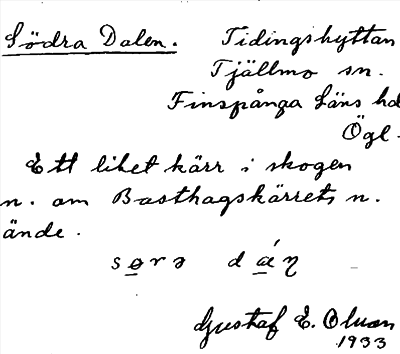 Södra Dalen. Tidingshyttan
Tjällmo sn.
Finspånga läns hd
Ögl.
Ett litet kärr i skogen
n. om Basthagskärrets n.
ände.
sørə dáŋ
Gustaf E. Olsson
1933